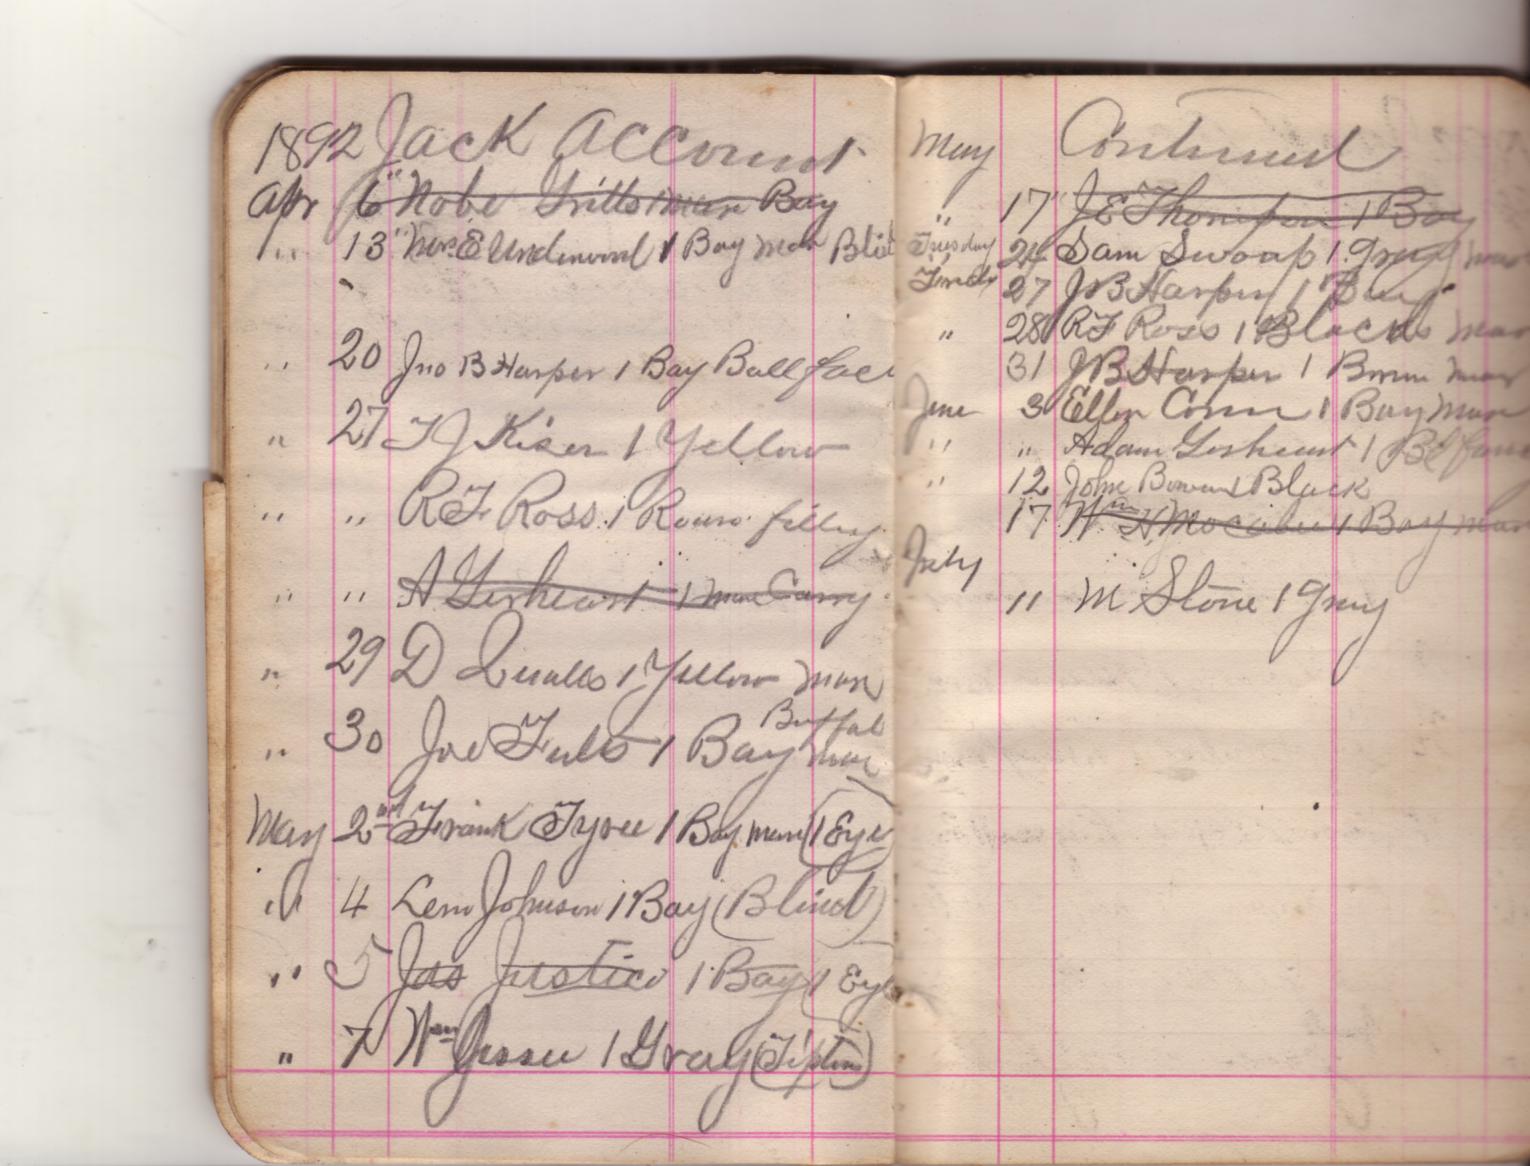 1892 Jack Account
Apr 6" Nobe Gritts 1 mare Bay
" 13" Mrs. E Underwood 1 Bay mare
" 20 Jno B Harper 1 Bay Ball face
" 27 T J Kiser 1 Yellow
" " R F Ross 1 Roan filley
" " A Gerheart 1 mare
" 29 D Qualls 1 Yellow mare
" 30 Joe Fults 1 Bay Buffal mare
May 2nd Frank Tyree 1 Bay mare (1 Eye
" 4 Lem Johnson 1 Bay (Blind)
" 5 Jas Justice 1 Bay (1 Eye
" 7 Wm Jesse 1 Gray (Tipton)
May Continued
" 17" J E Thompson 1 Bay
Tuesday 24 Sam Swoap 1 Gray mare
27 J B Harper 1 Bay
" 28 R F Ross 1 Black mare
31 J B Harper 1 Brown mare
June 3 Ellen Conn 1 Bay Mare
" " Adam Gerheart 1
" 12 John Bowen 1 Black
17 Wm H 1 Bay mare
July
" M Stone 1 Gray